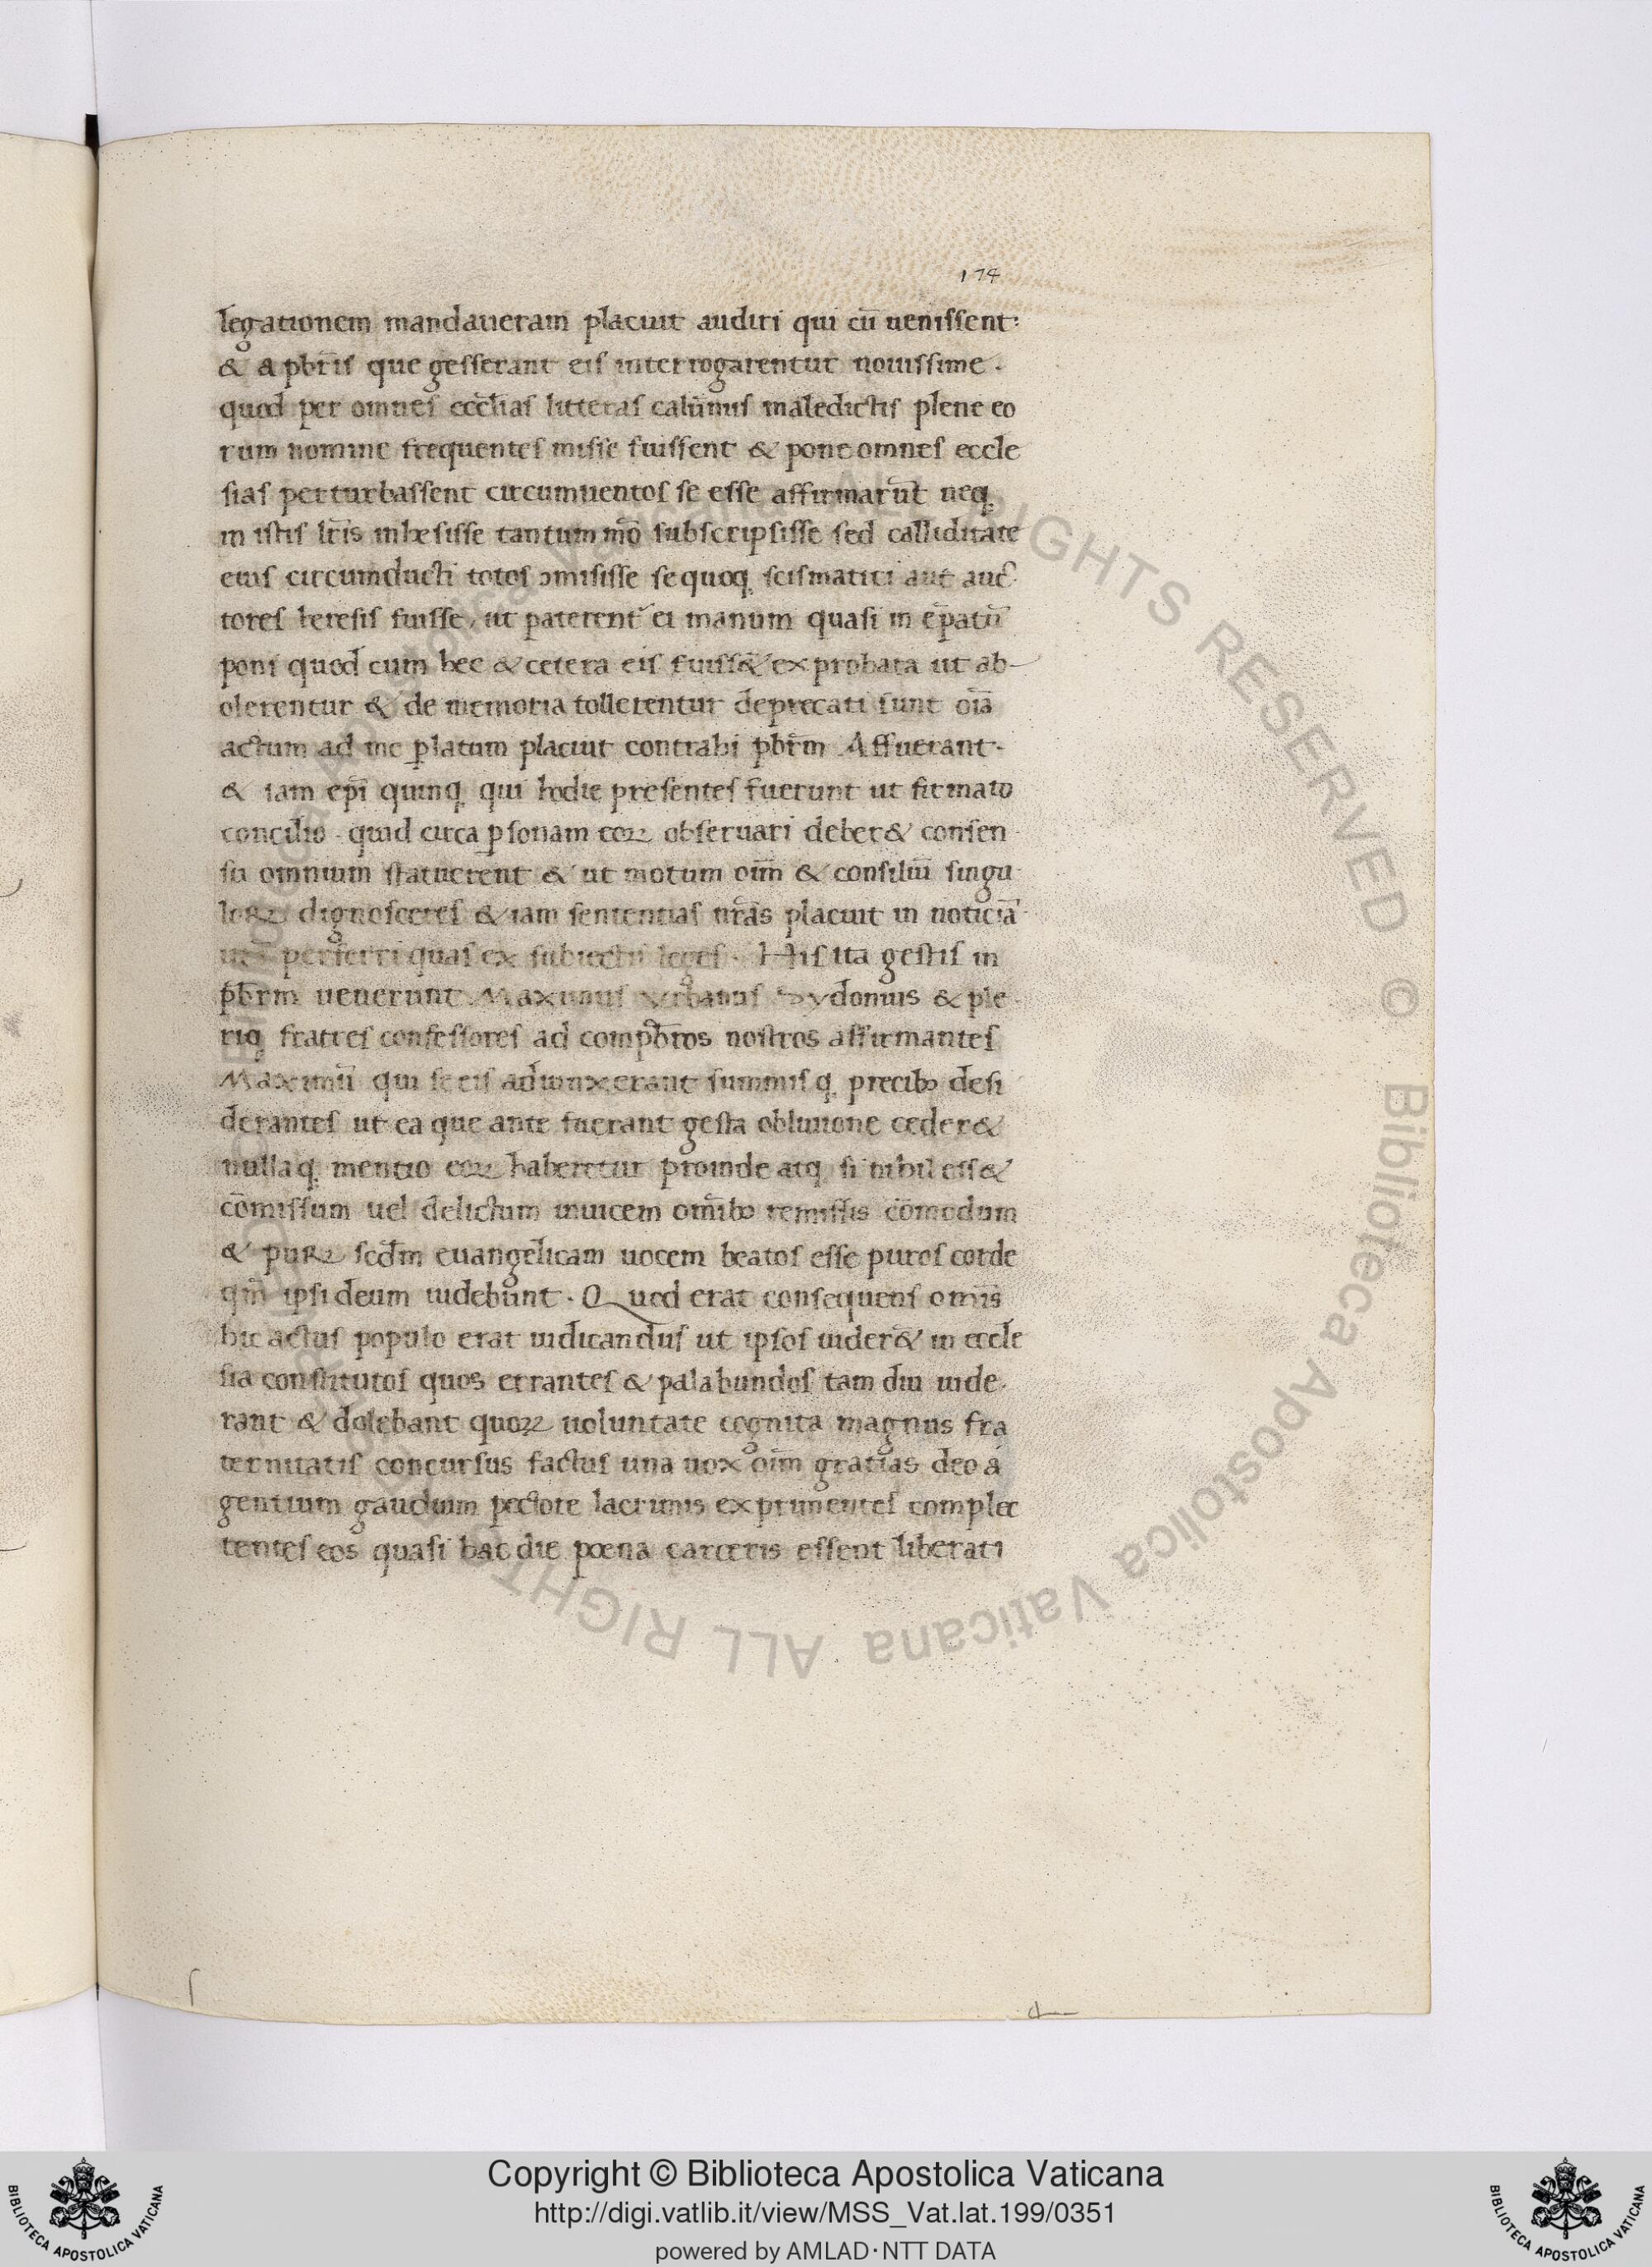 174
legationem mandaueram placuit audiri qui cū uenissent:
& a pbr̄is que gesserant eis interrogarentur nouissime.
quod per omnes eccl̄ias litteras calūniis maledictis plene eo
rum nomine frequentes misse fuissent & pone omnes eccle
sias perturbassent circumuentos se esse affirmarūt neq;
in istis lr̄is inhesisse tantum mō subscripsisse sed calliditate
eius circumducti totos ɔmisisse se quoq; scismatici aut auc
tores heresis fuisse, ut paterent᷑ ei manum quasi in ep̄atū
poni quod cum hec & cetera eis fuiss& exprobata ut ab-
olerentur & de memoria tollerentur deprecati sunt oīa
actum ad me ꝑlatum placuit contrahi pbr̄m Affuerant.
& iam ep̄i quinq; qui hodie presentes fuerunt ut firmato
concilio. quid circa ꝑsonam eoꝝ obseruari deber& consen
su omnium statuerent & ut motum oīm & consiliū singu
loꝝ dignosceres & iam sententias nr̄as placuit in noticiā
perferri quas ex subiectis leges. His ita gestis in
pbr̄m uenerunt Maximus Vrbanus Sydonius & ple
riq; fratres confessores ad compbr̄os nostros affirmantes
Maximū qui se eis adiunxerant summisq; precibꝫ desi
derantes ut ea que ante fuerant gesta obliuione ceder&
nullaq; mentio eoꝝ haberetur proinde atq; si nihil ess&
cōmissum uel delictum inuicem omībꝫ remissis cōmodum
& puꝝ scd̄m euangelicam uocem beatos esse puros corde
qm̄ ipsi deum uidebunt. Quod erat consequens omīs
hic actus populo erat indicandus ut ipsos uider& in eccle
sia constitutos quos errantes & palabundos tam diu uide
rant & dolebant quoꝝ uoluntate cognita magnus fra
ternitatis concursus factus una uox oīm gratias deo a
gentium gaudium pectore lacrimis exprimentes complec
tentes eos quasi hac die pœna carceris essent liberati
Copyright © Biblioteca Apostolica Vaticana
http://digi.vatlib.it/view/MSS_Vat.lat.199/0351
powered by AMLAD·NTT DATA
BIBLIOTECA APOSTOLICA VATICANA
BIBLIOTECA APOSTOLICA VATICANA
© Biblioteca Apostolica Vaticana ALL RIGHTS RESERVED